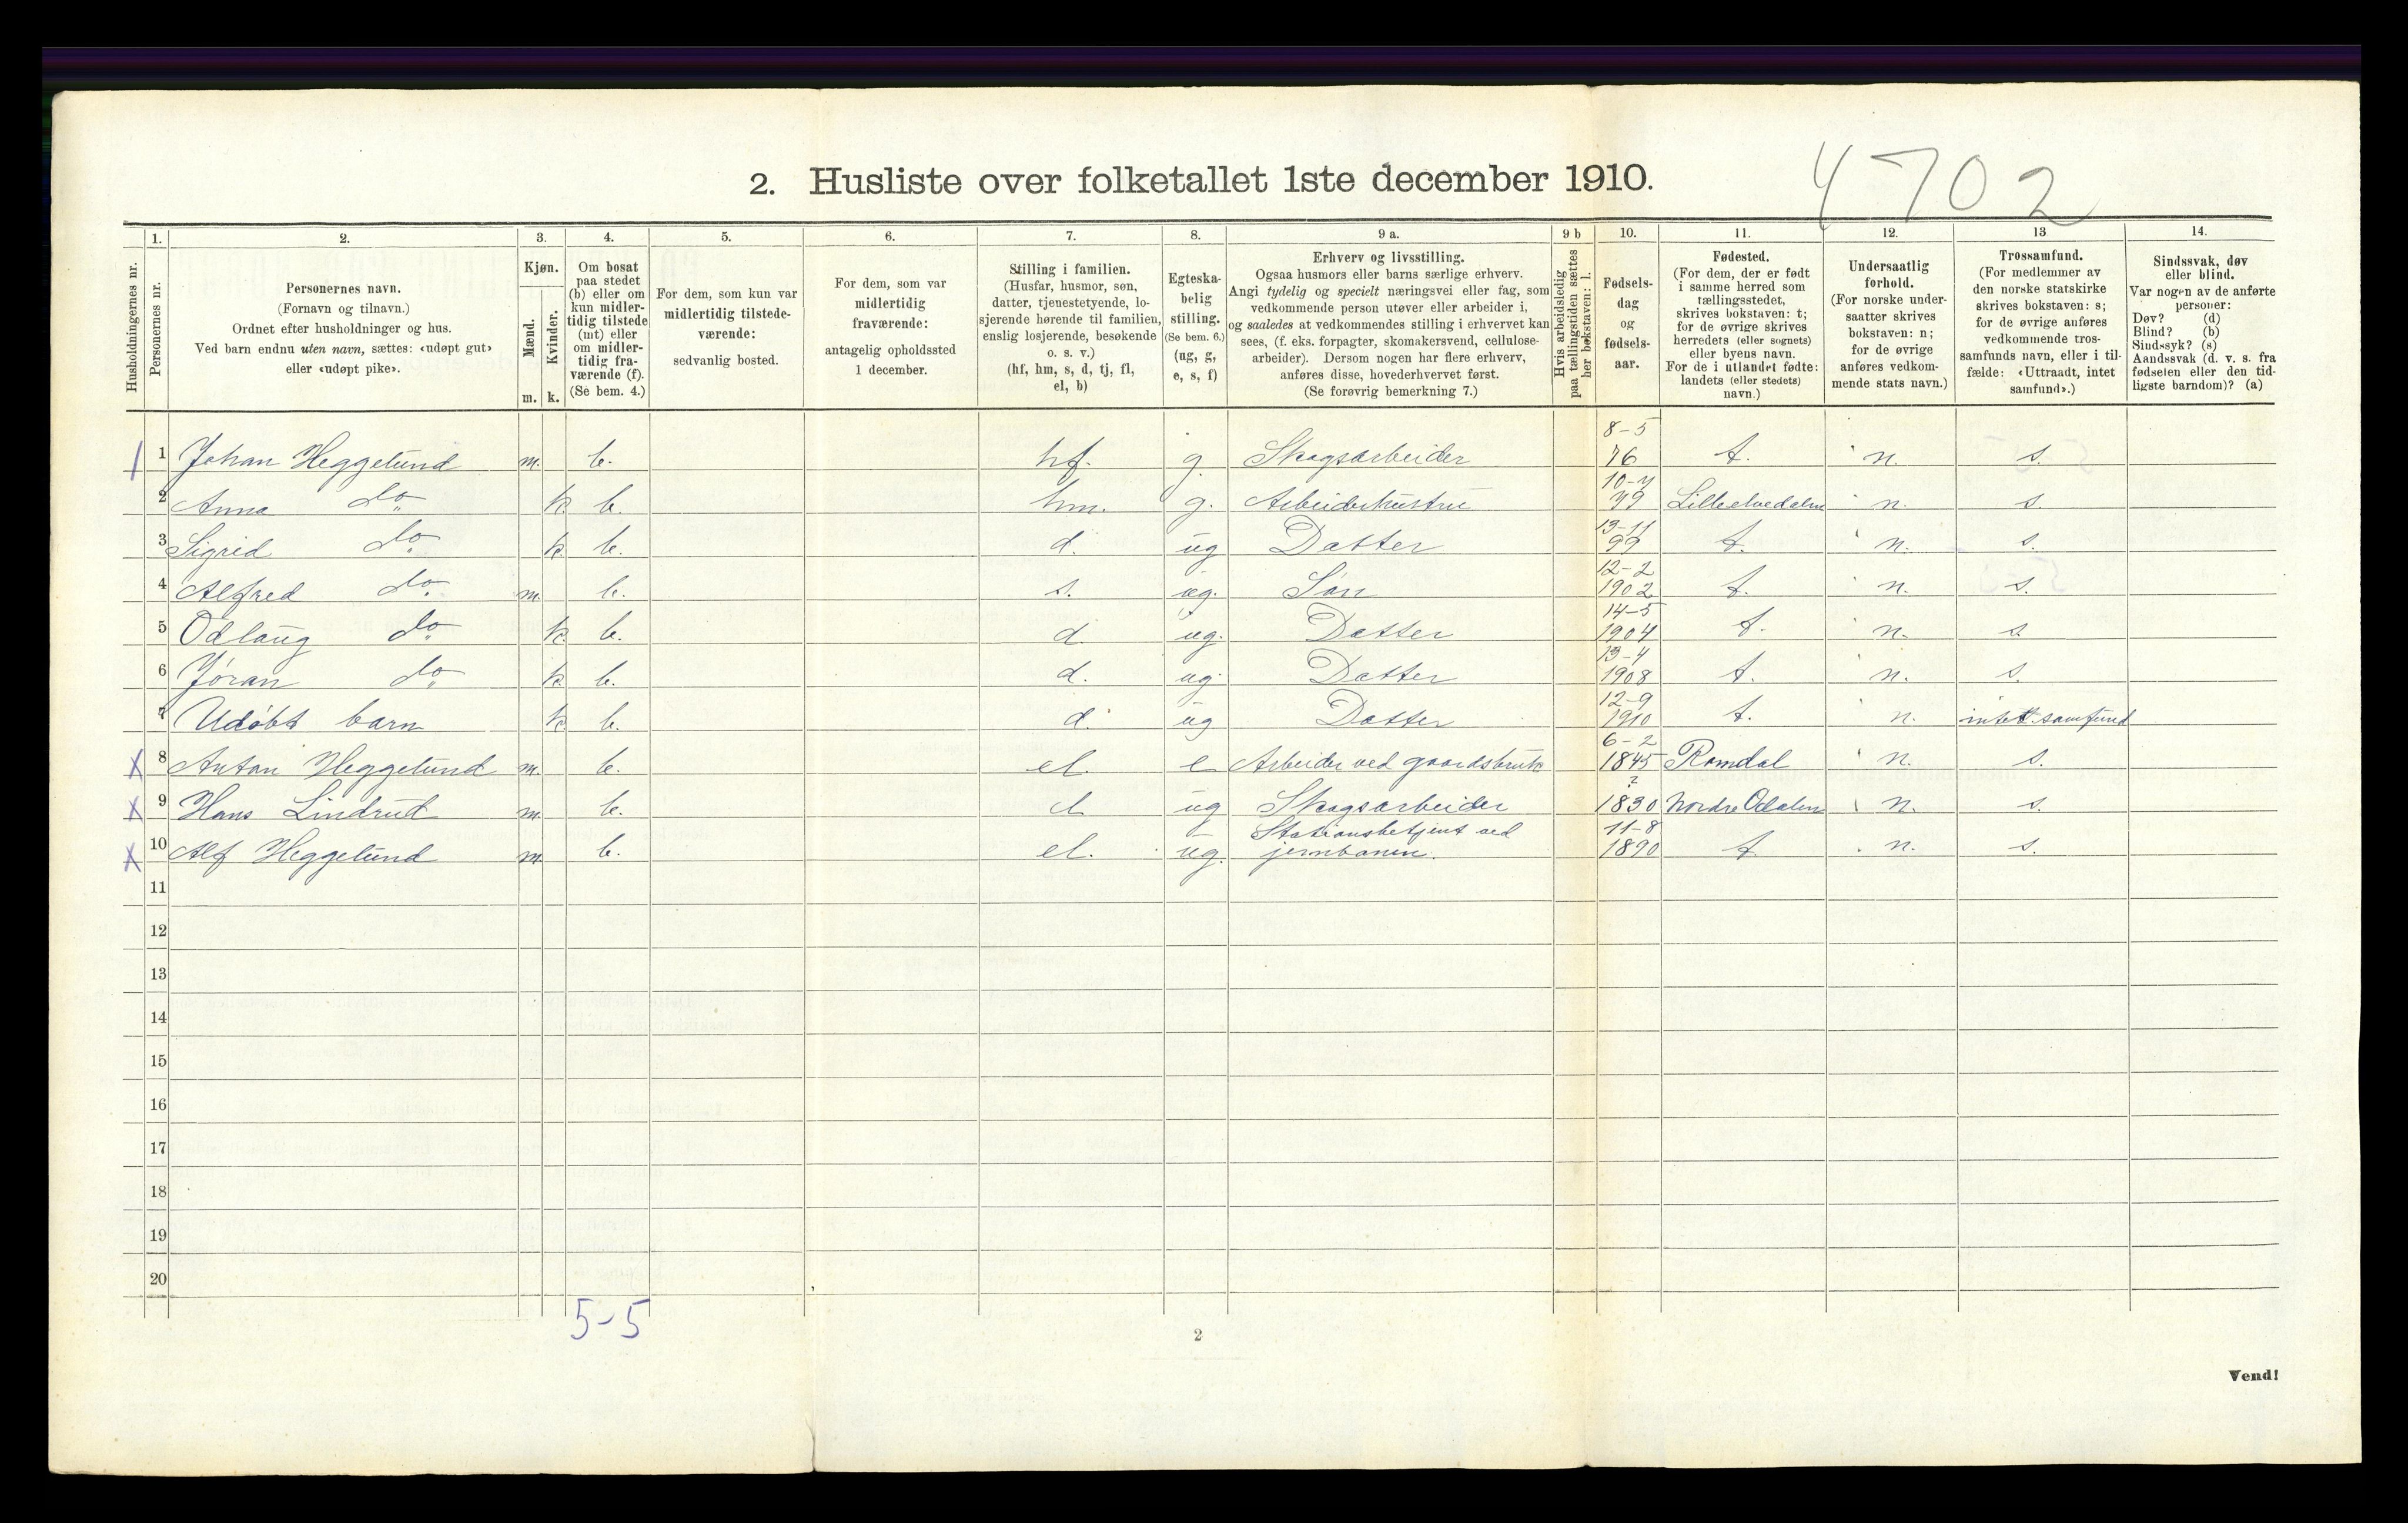 4702
2. Husliste over folketallet 1ste december 1910.
Husholdningernes nr.
1.
Personernes nr.
2.
Personernes navn.
(Fornavn og tilnavn.)
Ordnet efter husholdninger og hus.
Ved barn endnu uten navn, sættes: «udøpt gut»
eller «udøpt pike».
3.
Kjøn.
Mænd.
Kvinder.
m. k.
4.
Om bosat
paa stedet
(b) eller om
kun midler-
tidig tilstede
(mt) eller
om midler-
tidig fra-
værende (f).
(Se bem. 4.)
5.
For dem, som kun var
midlertidig tilstede-
værende:
sedvanlig bosted.
6.
For dem, som var
midlertidig
fraværende:
antagelig opholdssted
1 december.
7.
Stilling i familien.
(Husfar, husmor, søn,
datter, tjenestetyende, lo-
sjerende hørende til familien,
enslig losjerende, besøkende
o. s. v.)
(hf, hm, s, d, tj, fl,
el, b)
8.
Egteska-
belig
stilling.
(Se bem. 6.)
(ug, g,
e, s, f)
9 a.
Erhverv og livsstilling.
Ogsaa husmors eller barns særlige erhverv.
Angi tydelig og specielt næringsvei eller fag, som
vedkommende person utøver eller arbeider i,
og saaledes at vedkommendes stilling i erhvervet kan
sees, (f. eks. forpagter, skomakersvend, cellulose-
arbeider). Dersom nogen har flere erhverv,
anføres disse, hovederhvervet først.
(Se forøvrig bemerkning 7.)
9 b
Hvis arbeidsledig
paa tællingstiden sættes
her bokstaven: l.
10.
Fødsels-
dag
og
fødsels-
aar.
11.
Fødested.
(For dem, der er født
i samme herred som
tællingsstedet,
skrives bokstaven: t;
for de øvrige skrives
herredets (eller sognets)
eller byens navn.
For de i utlandet fødte:
landets (eller stedets)
navn.)
12.
Undersaatlig
forhold.
(For norske under-
saatter skrives
bokstaven: n;
for de øvrige
anføres vedkom-
mende stats navn.)
13
Trossamfund.
(For medlemmer av
den norske statskirke
skrives bokstaven: s;
for de øvrige anføres
vedkommende tros-
samfunds navn, eller i til-
fælde: «Uttraadt, intet
samfund».)
14.
Sindssvak, døv
eller blind.
Var nogen av de anførte
personer:
Døv? (d)
Blind? (b)
Sindssyk? (s)
Aandssvak (d. v. s. fra
fødselen eller den tid-
ligste barndom)? (a)
1 Johan Heggelund m. b. hf. g. Skogsarbeider 8-5 76 t. n. s.
2 Anna do k. b. hm. g. Arbeiderhustru 79 Lilleelvedalen n. s.
3 Sigrid do k. b. d. ug Datter 13-11 99 t. n. s.
4 Alfred do m. b. s. ug. Søn 12-2 1902 t. n. s.
5 Odlaug do k. b. d. ug. Datter 14-5 1904 t. n. s.
6 Jøran do k. b. d. ug. Datter 13-4 1908 t. n. s.
7 Udøbt barn k. b. d. ug Datter 12-9 1910 t. n. intet samfund
X 8 Anton Heggelund m. b. el. e Arbeider ved gaardsbruk 6-2 1845 Romdal n. s.
X 9 Hans Lindrud m. b. el ug Skogsarbeider ? 1830 Nordre Odalen n. s.
X 10 Alf Heggelund m. b. el. ug. Stationsbetjent ved jernbanen. 11-8 1890 t. n. s.
11
12
13
14
15
16
17
18
19
20
5-5
2
Vend!